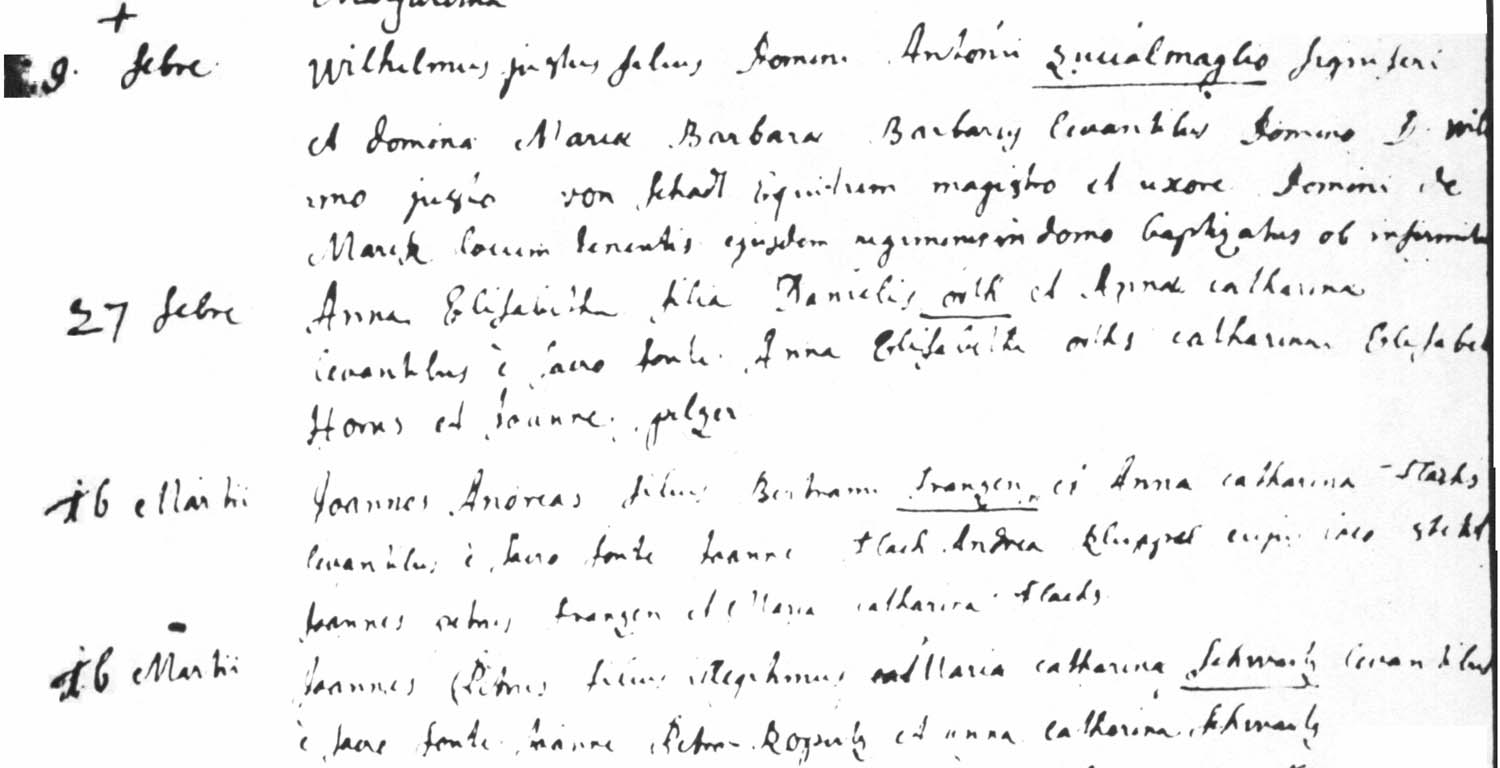 Margaretha
+
9. febre Wilhelmus justus filius Domini Antonii Zuccalmaglio signiferi
et Domina Maria Barbara levantibus Domino D. Wil
mo justo von Schadt Equitum magistro et uxore Domini de
Marck locum tenentis ejusdem regiminis in domo baptizatus ob infirmit
27 febre Anna Elisabetha filia Danielis orth et Anna catharina
levantibus è sacro fonte Anna Elisabetha orths catharina Elisabet
Horns et Joanne pilger
16 Martii Joannes Andreas filius Bertrami frangen et Anna catharina flachs
levantibus è sacro fonte Joanne flach Andrea Kluppel cujus loco stetit
Joannes petrus frangen et Maria catharina flachs
16 Martii Joannes Petrus filius illegitimus Maria catharina Schwartz levantibus
è sacro fonte Joanne Petro et anna catharina Schwartz